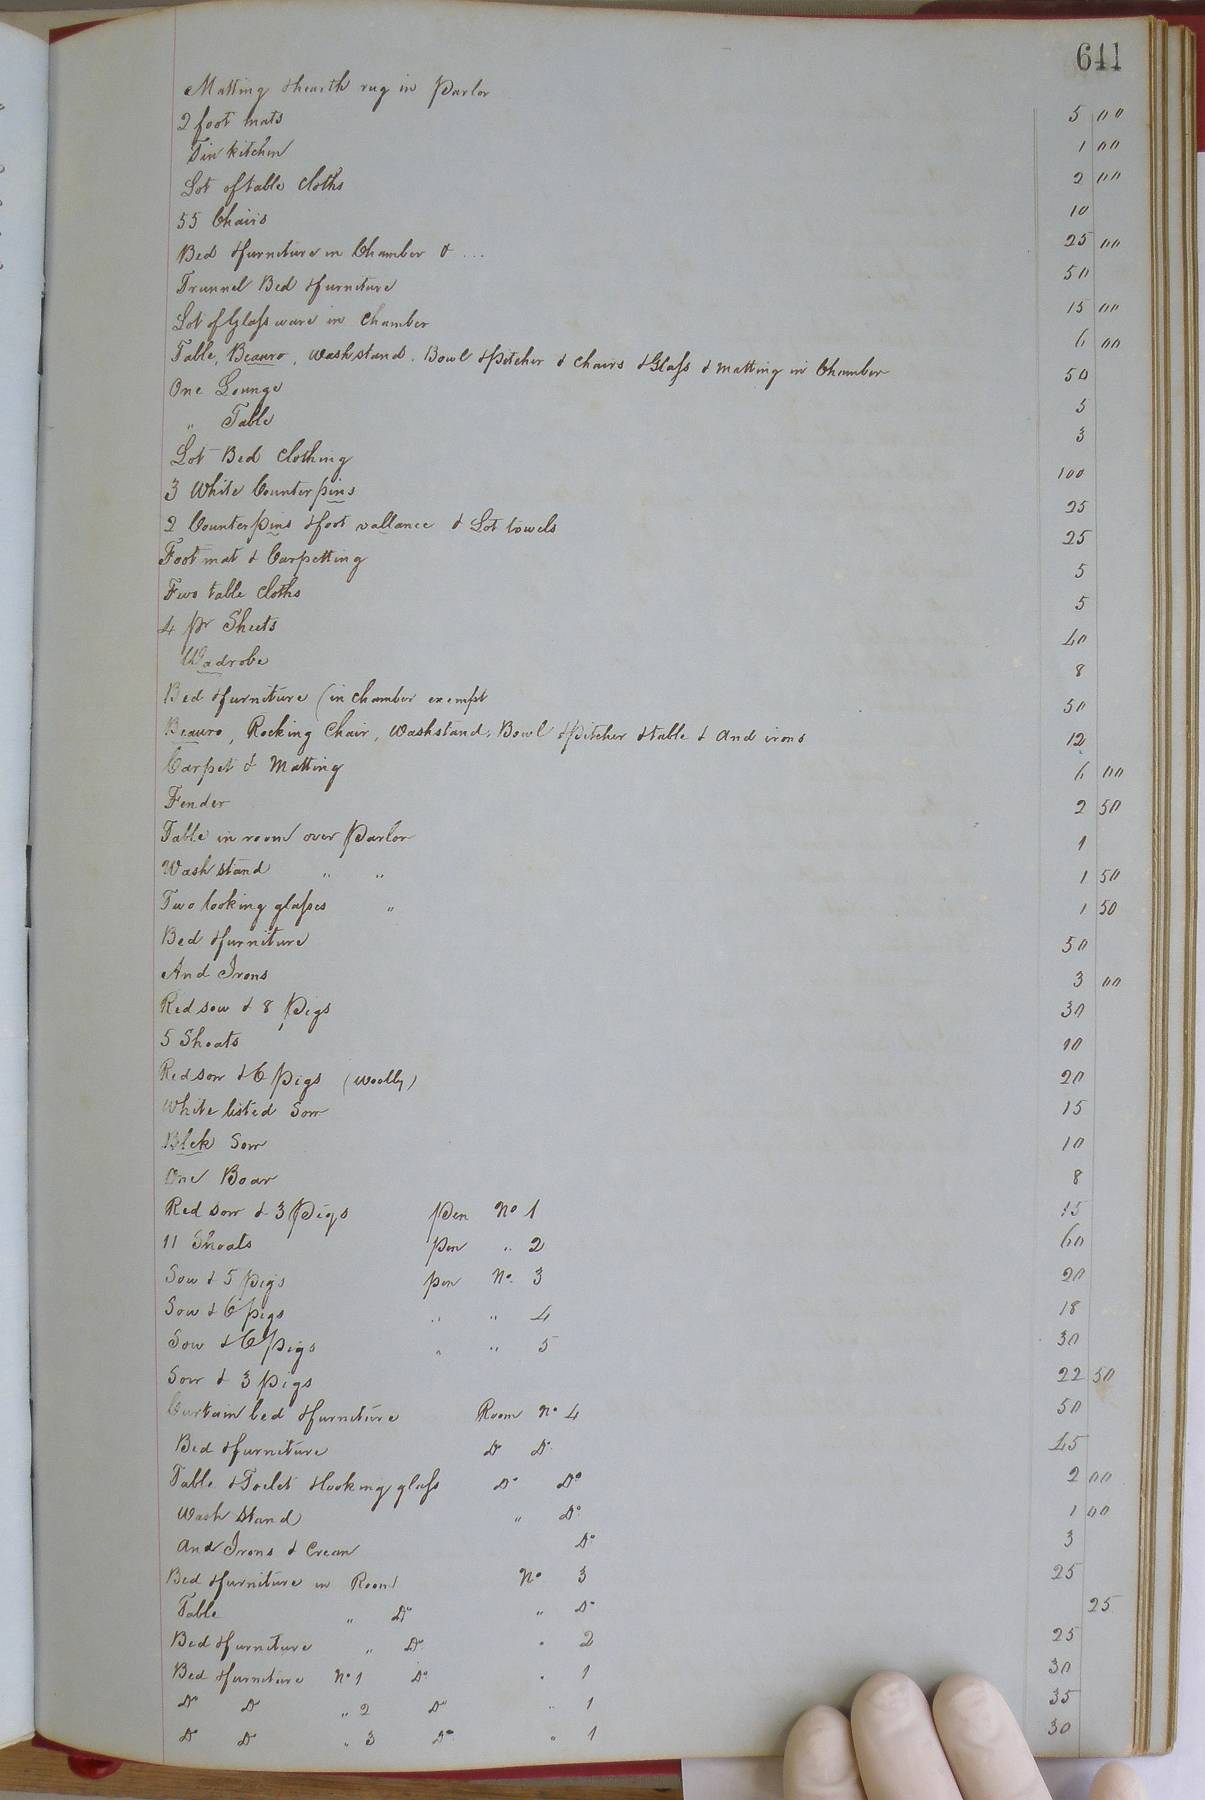 641
Matting & hearth rug in Parlor 5 00
2 foot mats 1 00
Tin kitchen 2 00
Lot of table cloths 10
55 Chairs 25 00
Bed & furniture in Chamber & ... 50
Trunnel Bed & furniture 15 00
Lot of Glass ware in chamber 6 00
Table, Beauro, washstand. Bowl & Pitcher & chairs & Glass & matting in Chamber 50
One Lounge 5
" Table 3
Lot Bed Clothing 100
3 White Counterpins 25
2 Counterpins & foot vallance & Lot towels 25
Foot mat & Carpetting 5
Two table cloths 5
4 pr Sheets 40
Wadrobe 8
Bed & furniture (in chamber exempt 50
Beauro, Rocking Chair, Washstand. Bowl & Pitcher & table & And irons 12
Carpet & Matting 6 00
Fender 2 50
Table in room over Parlor 1
Wash stand " " 1 50
Two looking glasses " 1 50
Bed & furniture 50
And Irons 3 00
Red sow & 8 Pigs 30
5 Shoats 10
Red sow & 6 Pigs (woolly) 20
White listed Sow 15
Blck Sow 10
One Boar 8
Red sow & 3 Pigs pen No 1 15
11 Shoats pen " 2 60
Sow & 5 pigs pen No. 3 20
Sow & 6 pigs " " 4 18
Sow & 6 Pigs " " 5 30
Sow & 3 Pigs 22 50
Curtain bed & furniture Room No 4 50
Bed & furniture Do Do 45
Table & Toilet & looking glass Do Do 2 00
Wash Stand " Do 1 00
And Irons & Crean Do 3
Bed & furniture in Room No 3 25
Table " Do " Do 25
Bed & furniture " Do " 2 25
Bed & furniture No 1 Do " 1 30
Do Do " 2 Do " 1 35
Do Do " 3 Do " 1 30